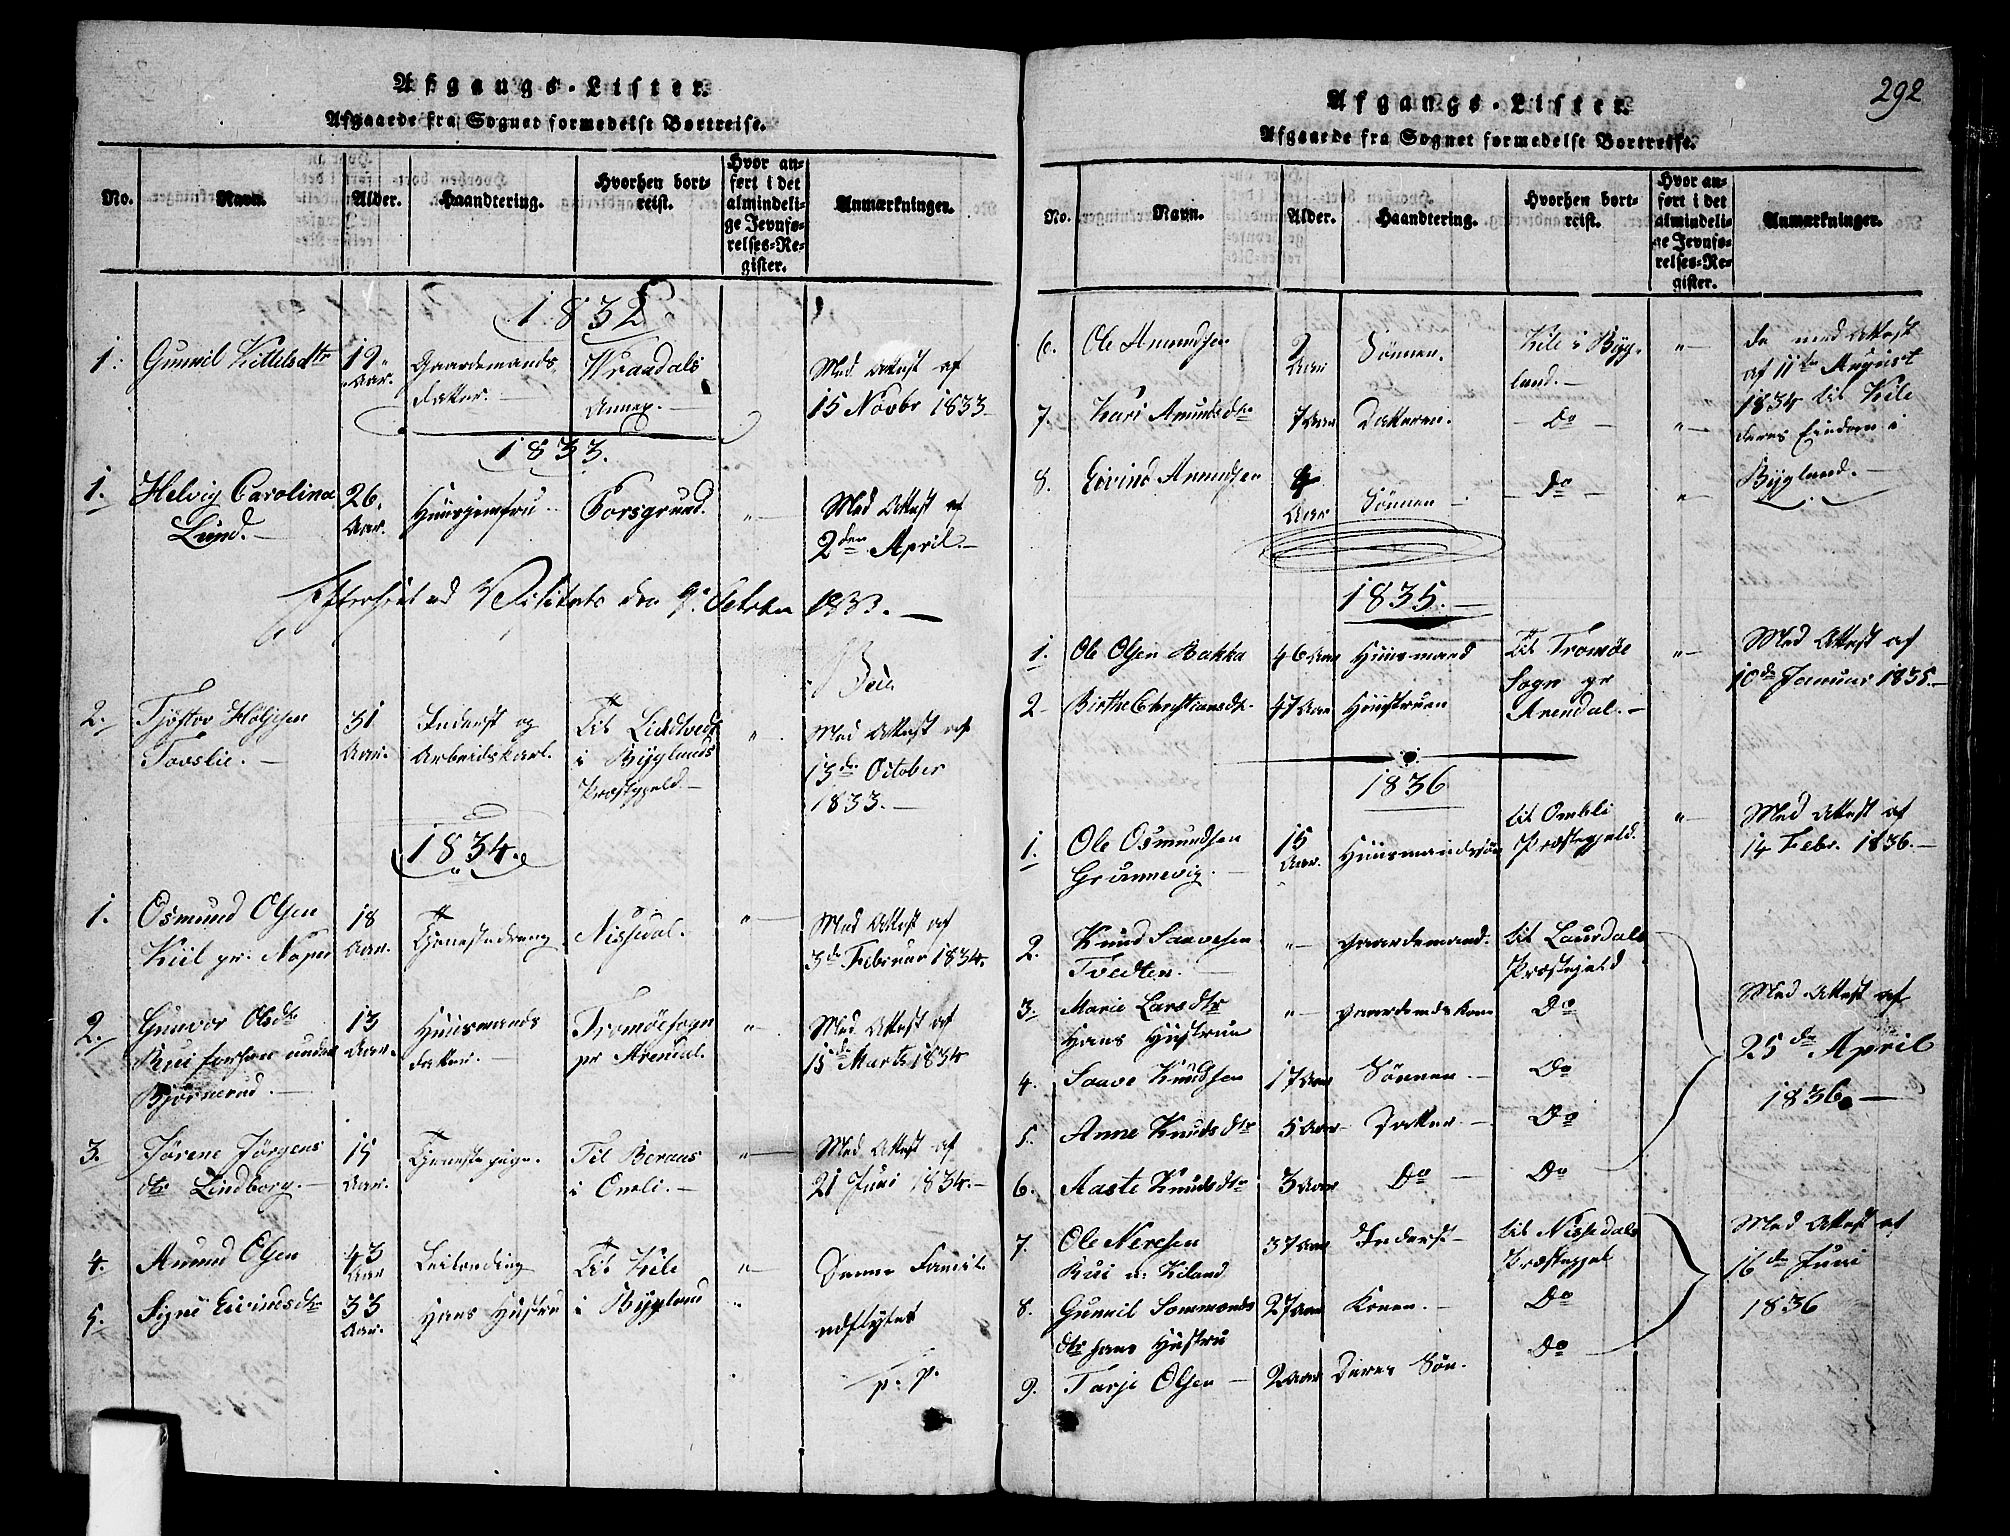 Afgangs-Lister.
Afgaaede fra Sognet formedelst Bortreise.
No. Navn. Alder. Haandtering. Hvorhen bortreist. Hvor anført i det almindelige Jevnførelses-Register. Anmærkninger.
1832
1. Gunvil Kittilsdtr 19 Aar. Gaardemands datter. Wraadals Annex. Med Attest af 15 Novbr 1833
1833.
1. Helvig Carolina Lund. 26. Aar. Huusjomfru Porsgrund. " Med Attest af 2den April.
Efterseet ved Visitats den 9 1833.
2. Tjøstov Høljesen Tovslie. 31 Aar. Inderst og Arbeidskarl. Til i Byglands Præstegjeld " Med Attest af 13de October 1833.
1834.
1. Osmund Olsen Kiil pr. Næs 18 Aar. Tjenestedreng Nissedal. " Med Attest af 3de Februar 1834.
2. Gunvor Olsdtr under Bjørnerud. 13 Aar. Huusmands datter. Tromøe sogn pr Arendal. " Med Attest af 15de Marts 1834
3. Jørene Jørgensdtr Lindborg. 15 Aar. Tjenestepige. Til i Omli. " Med Attest af 21 Juni 1834.
4. Amund Olsen 43 Aar Leilending Til Kile "
5. Signe Eivindsdtr 33 Aar. Hans Hustru i Bygland " Denne Famil. udflyttet
p. p.
292
Afgangs-Lister.
Afgaaede fra Sognet formedelst Bortreise.
No. Navn. Alder. Haandtering. Hvorhen bortreist. Hvor anført i det almindelige Jevnførelses-Register. Anmærkninger.
6. Ole Amundsen 9 Aar Sønnen. Kile i Bygland. "
7. Kari Amundsdtr 7 Aar Datteren. Do "
8. Eivind Amundsen 4 Aar Sønnen Do "
de med Attest af 11te August 1834 til Kile deres Eiendom i Bygland.
1835.
1. Ole Olsen Bakka 46 Aar Huusmand til Tromøe "
2 Birthe Christiansdtr. 47 Aar Hustruen Sogn pr Arendal. Med Attest af 10de Januar 1835.
1836
1. Ole Osmundsen Grunnevig. 15 Aar. Huusmandssøn til Omli Præstegjeld. " Med Attest af 14 Febr. 1836.
2. Knud Saavesen Tvedten. " Gaardemand. til Laurdals Præstegjeld
3. Marie Larsdtr Hans Hustrue " Gaardmdskone Do
4. Saave Knudsen 17 Aar Sønnen Do
5. Anne Knudsdtr 5 Aar Datter Do
6. Aaste Knudsdtr 3 Aar Do Do
Med Attest af 25de April 1836.
7. Ole Neresen Rui u: Kiland 37 Aar Inderst til Nissedals Præstegjel
8. Gunvil Sammonds dtr hans Hustru 27 Aar Konen. Do
9. Tarje Olsen 2 Aar Deres Søn. Do
Med Attest af 16de Juni 1836